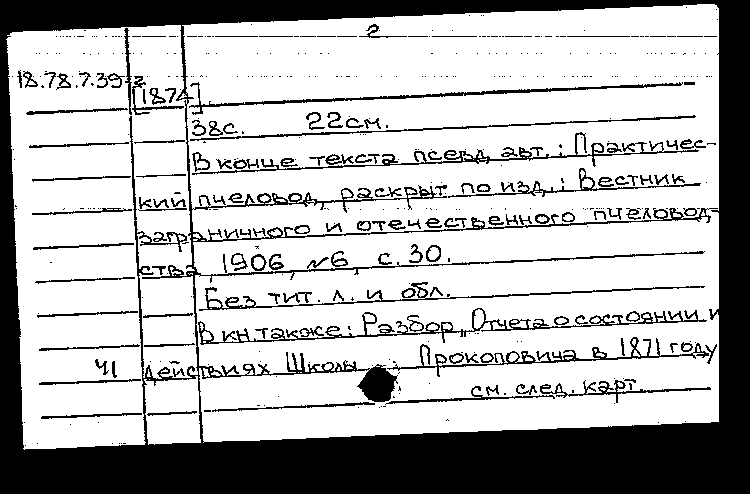 2
18.78.7.39-2
[1874]
38с. 22см.
В конце текста псевд. авт.: Практичес-
кий пчеловод, раскрыт по изд.: Вестник
заграничного и отечественного пчеловод-
ства, 1906, №6, с.30.
Без тит. л. и обл.
В кн. также: Разбор „Отчета о состоянии и
Ч1 действиях Школы Прокоповича в 1871 году
см. след. карт.